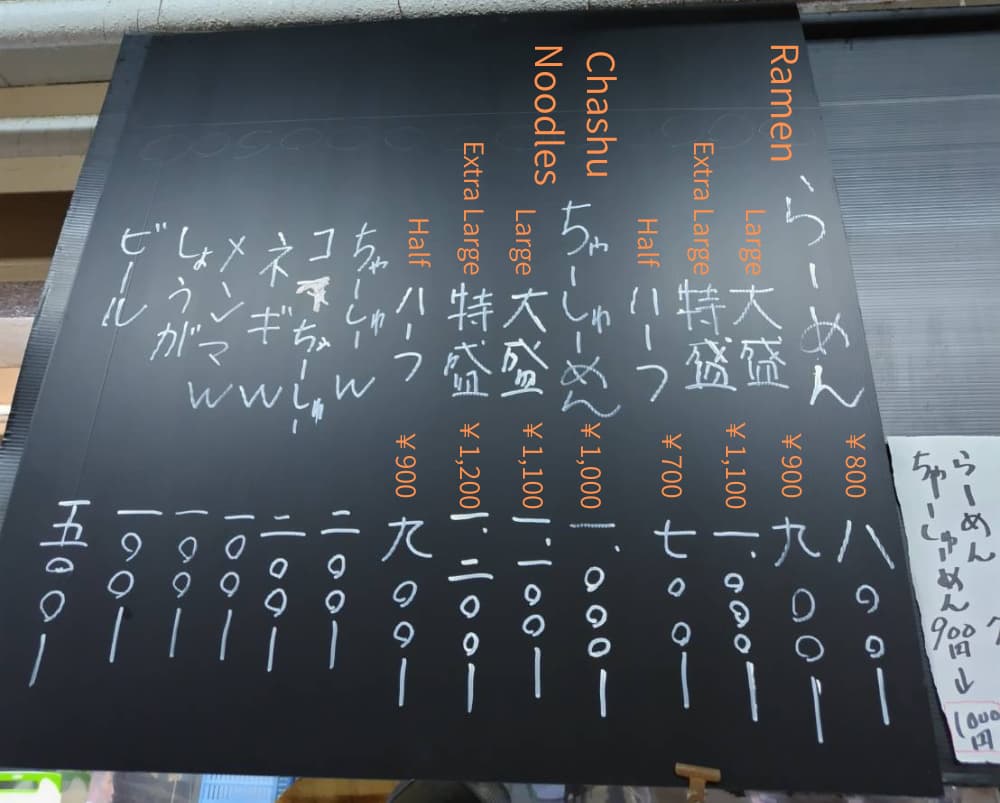 らーめん
ちゃーしゅーめん 900円 ↓ 1000円
Ramen らーめん ¥800 八〇〇ー
Large 大盛 ¥900 九〇〇ー
Extra Large 特盛 ¥1,100 一、〇〇〇ー
Half ハーフ ¥700 七〇〇ー
Chashu Noodles ちゃーしゅーめん ¥1,000 一、〇〇〇ー
Large 大盛 ¥1,100 一、一〇〇ー
Extra Large 特盛 ¥1,200 一、二〇〇ー
Half ハーフ ¥900 九〇〇ー
ちゃーしゅーW 二〇〇ー
ちゃーしゅー 二〇〇ー
ネギW 一〇〇ー
メンマW 一〇〇ー
しょうがW 一〇〇ー
ビール 五〇〇ー